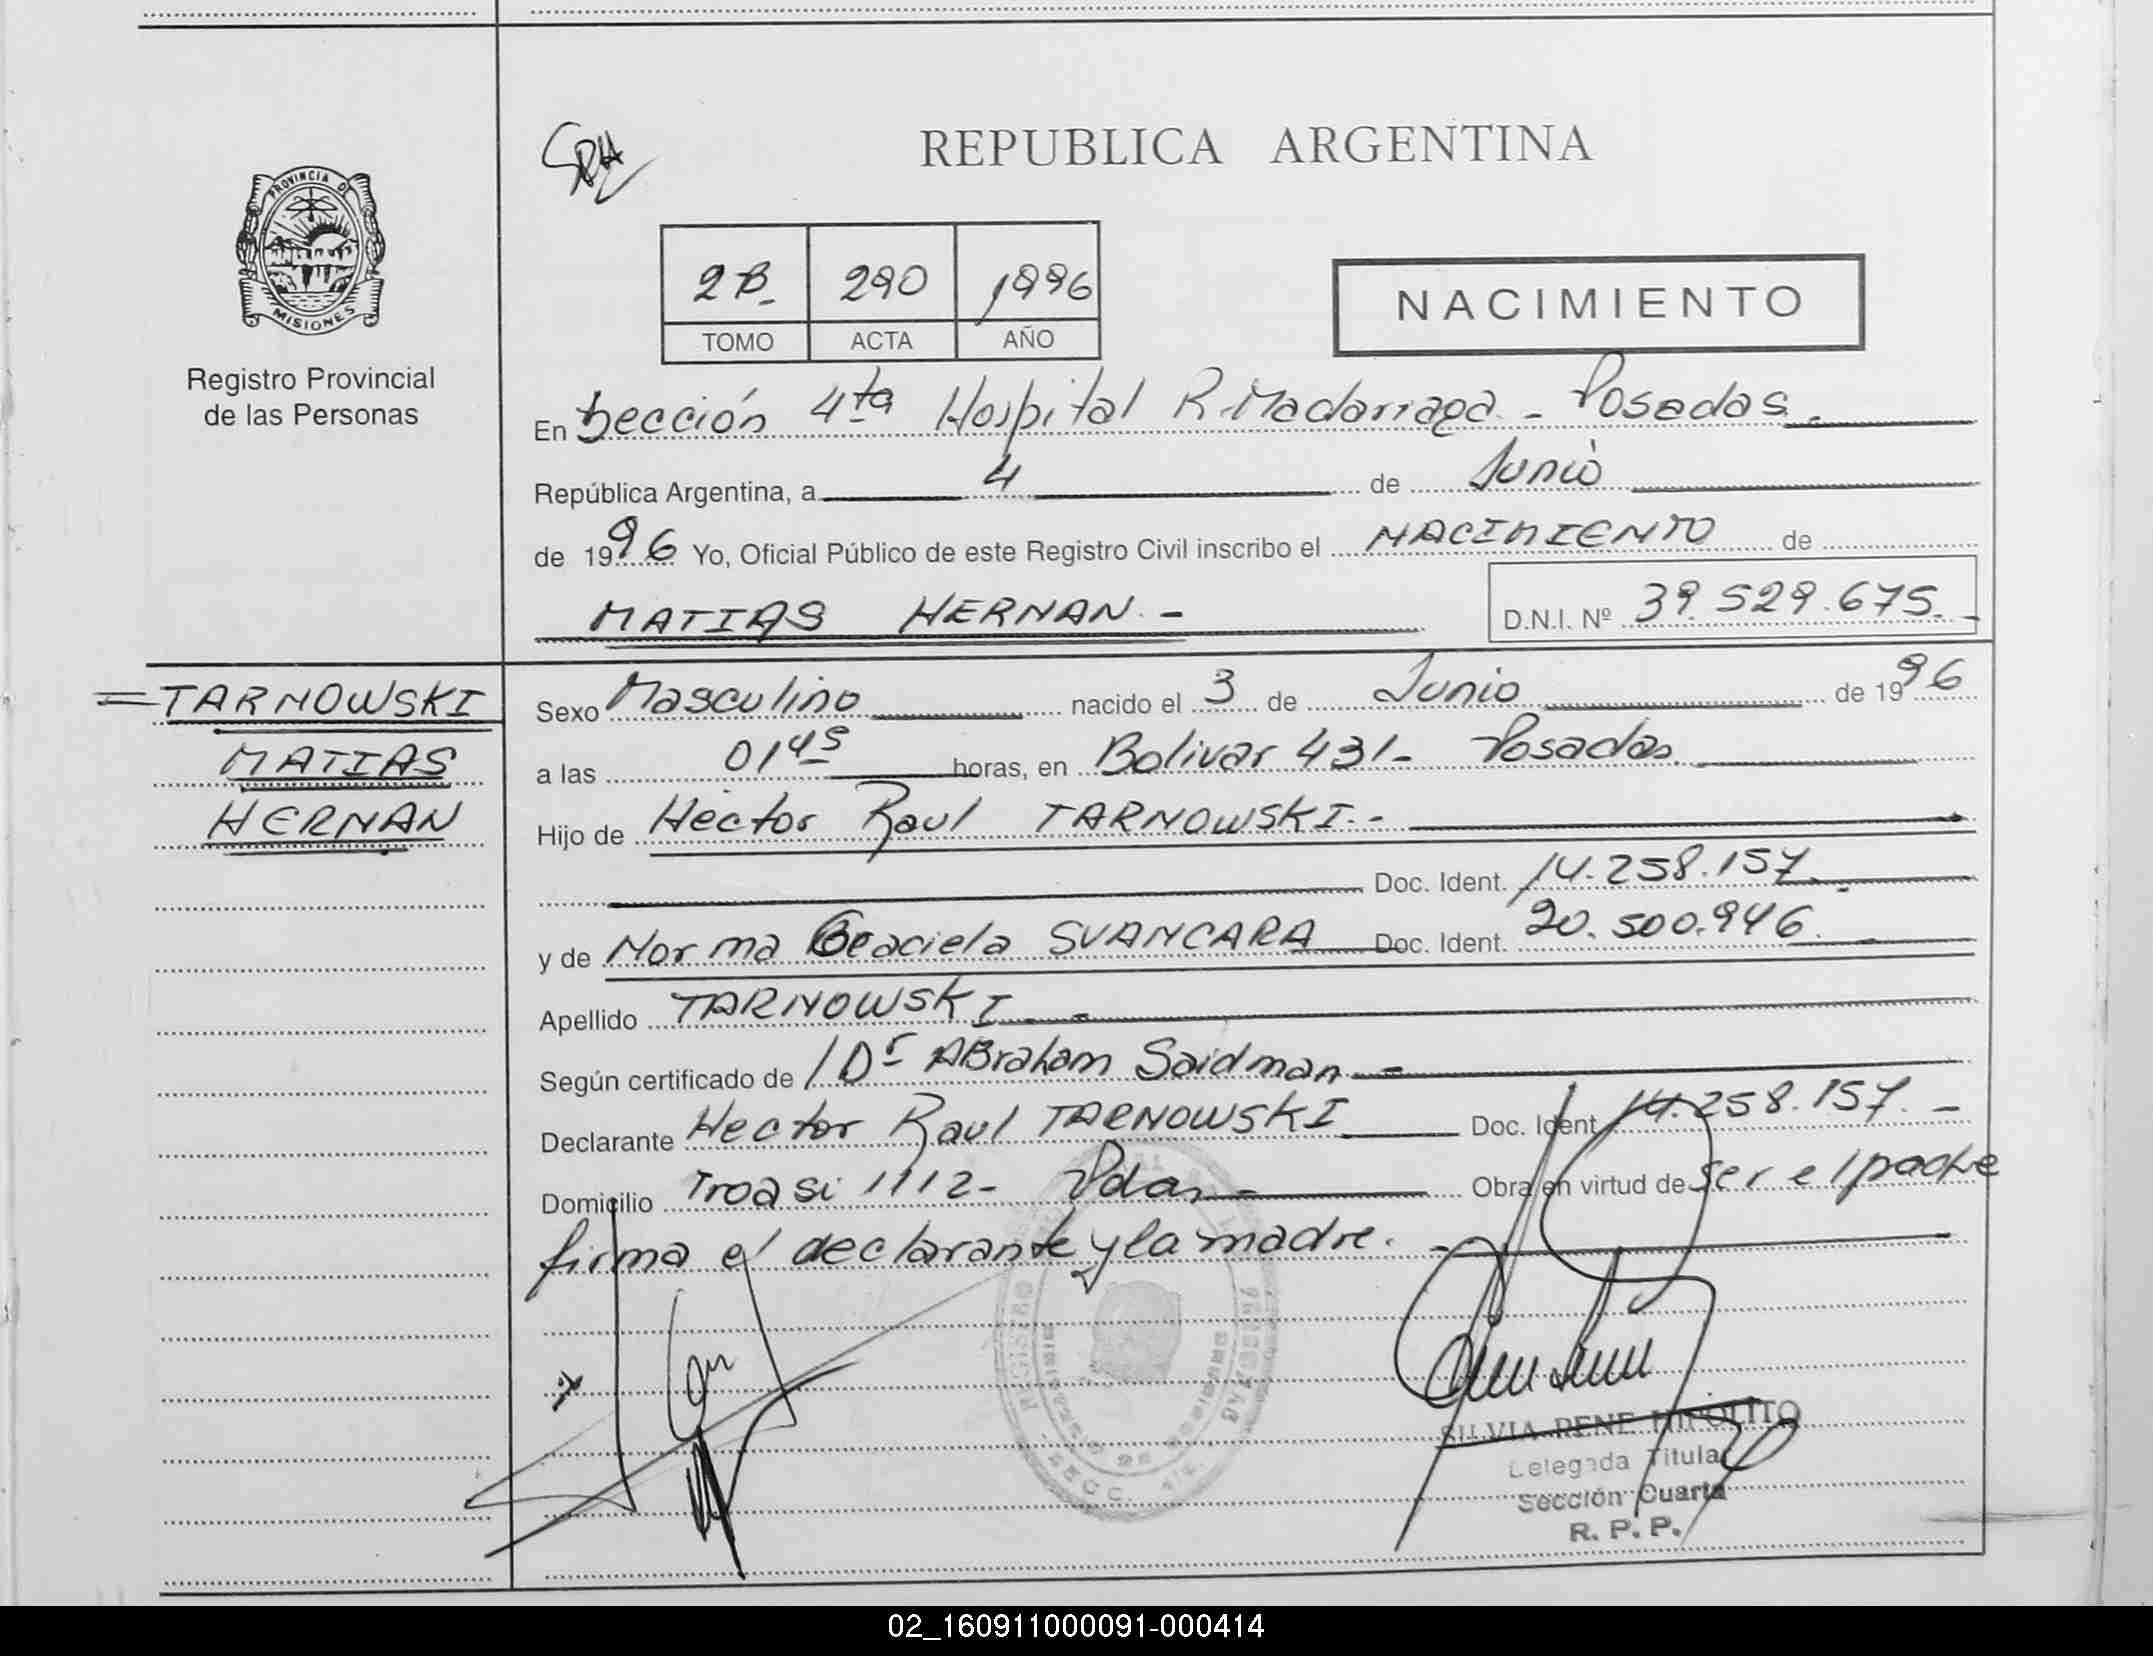 REPUBLICA ARGENTINA
PROVINCIA DE
MISIONES
Registro Provincial
de las Personas
2B 290 1996
TOMO ACTA AÑO
NACIMIENTO
En Sección 4ta Hospital R. Madariaga - Posadas.
República Argentina, a 4 de Junio
de 1996 Yo, Oficial Público de este Registro Civil inscribo el NACIMIENTO de
MATIAS HERNAN.- D.N.I. Nº 39.529.675.-
=TARNOWSKI
MATIAS
HERNAN
Sexo Masculino nacido el 3 de Junio de 1996
a las 01 45 horas, en Bolivar 431- Posadas.
Hijo de Hector Raul TARNOWSKI.-
Doc. Ident. 14.258.157.-
y de Norma Graciela SVANCARA Doc. Ident. 20.500.946.
Apellido TARNOWSKI.-
Según certificado de Dr ABraham Saidman -
Declarante Hector Raul TARNOWSKI Doc. Ident. 14.258.157.-
Domicilio 1112- Pdas - Obra en virtud de ser el padre
firma el declarante y la madre. -
SILVIA RENE HIPOLITO
Delegada Titular
Sección Cuarta
R. P. P.
02_160911000091-000414